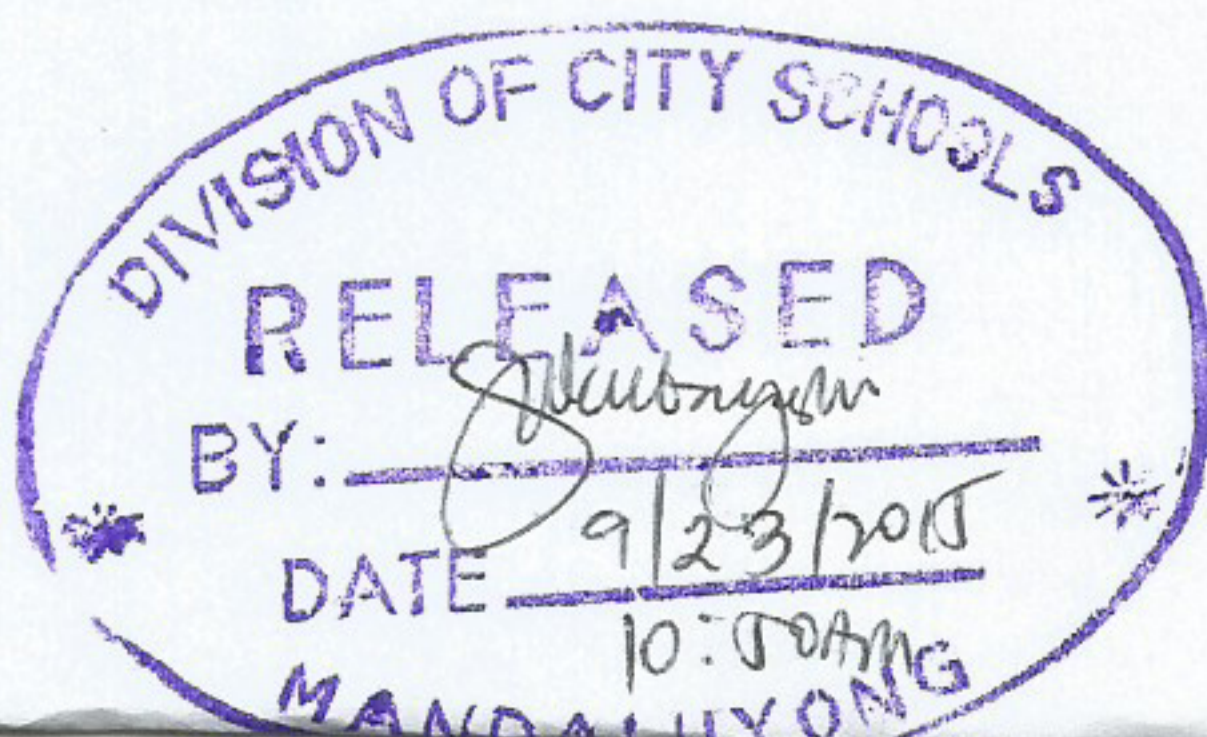 DIVISION OF CITY SCHOOLS
RELEASED
BY:
DATE 9/23/2015
10:50AM
MANDALUYONG